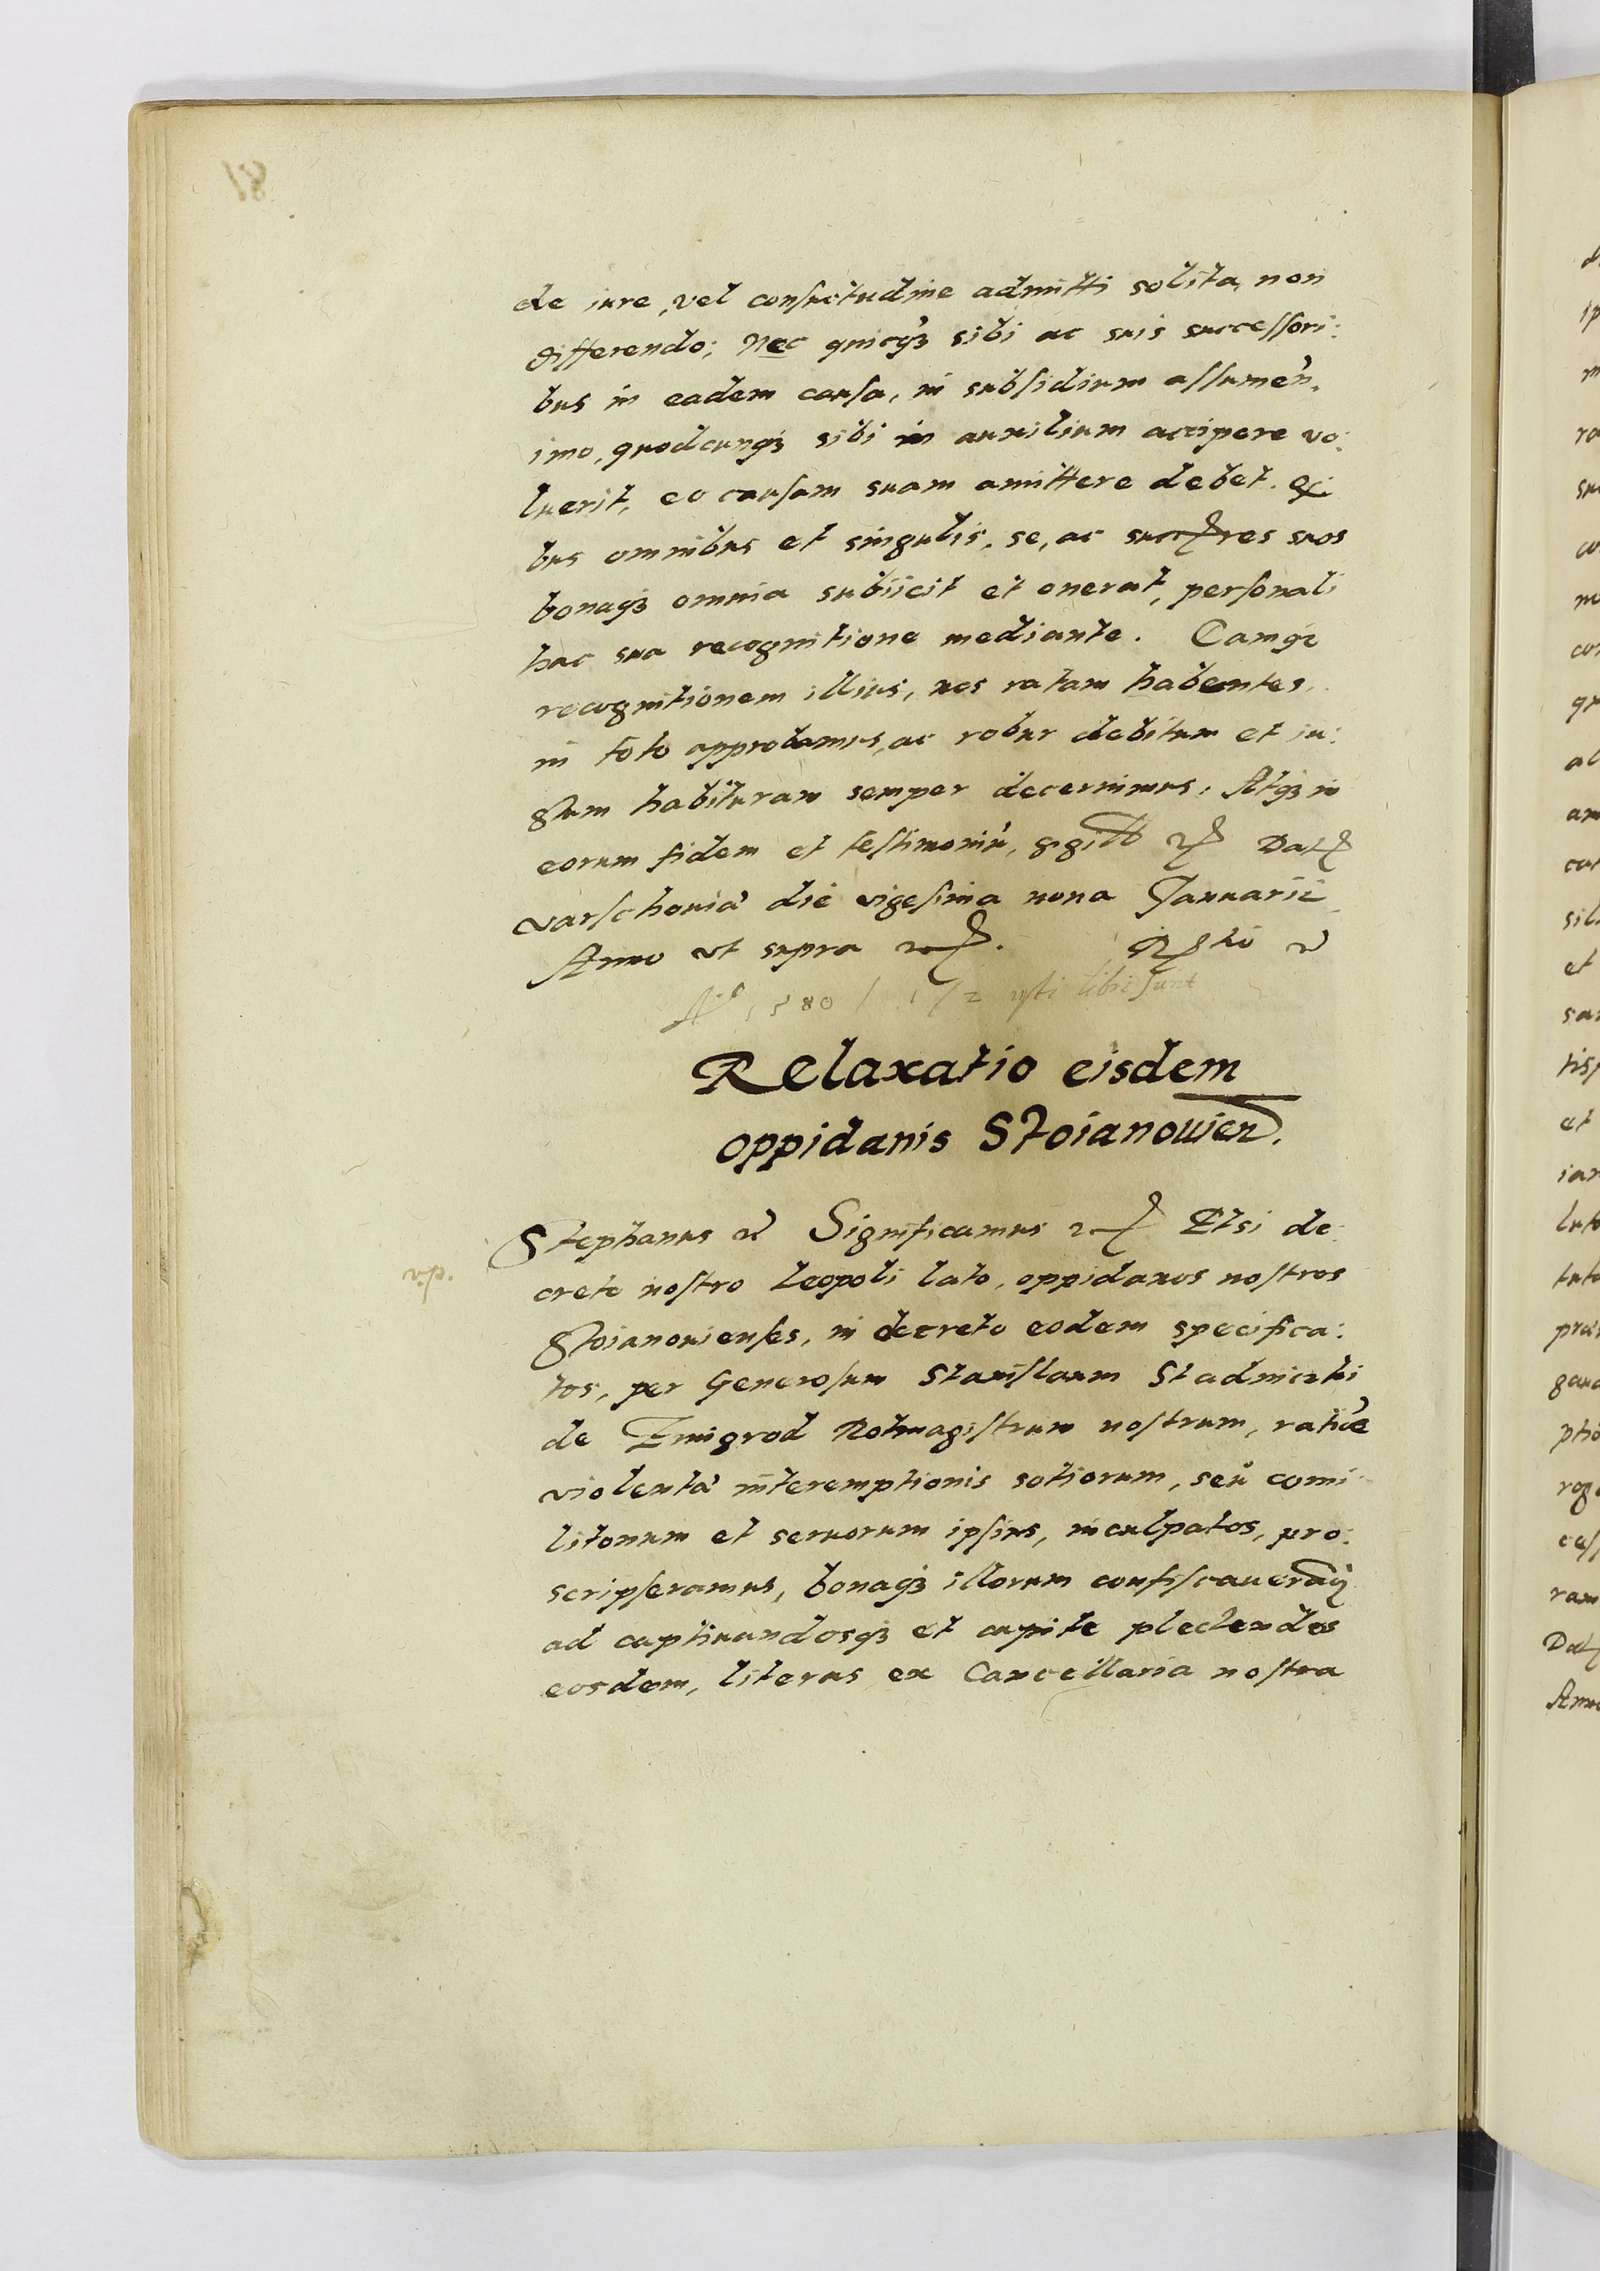 de iure, vel consuetudine admitti solita, non
differendo; Nec quicq3 sibi ac suis successori:
bus in eadem causa, in subsidium assumen.
imo, quodcunq3 sibi in auxilium accipere vo:
luerit, eo causam suam amittere debet.
bus omnibus et singulis, se, ac succres suos
bonaq3 omnia subiicit et onerat, personali
hac sua recognitione mediante. Eamq3
recognitionem illius, nos ratam habentes,
in toto approbamus, ac robur debitum et iu:
stum habituram semper decernimus. Atq3 in
eorum fidem et testimoniũ, Dat
Varschouiæ die vigesima nona Januarii
Anno vt supra
1580 libri sunt
Relaxatio eisdem
oppidanis Stoianouien.
Stephanus Significamus Etsi de:
creto nostro Leopoli lato, oppidanos nostros
Stoianouienses, in decreto eodem specifica:
tos, per Generosum Stanislaum Stadniczki
de Zmigrod Rotmagistrum nostrum, ratiõe
violentæ interemptionis sotiorum, seu comi:
litonum et seruorum ipsius, inculpatos, pro:
scripseramus, bonaq3 illorum confiscaueram9
ad captiuandosq3 et capite plectendos
eosdem, literas ex Cancellaria nostra